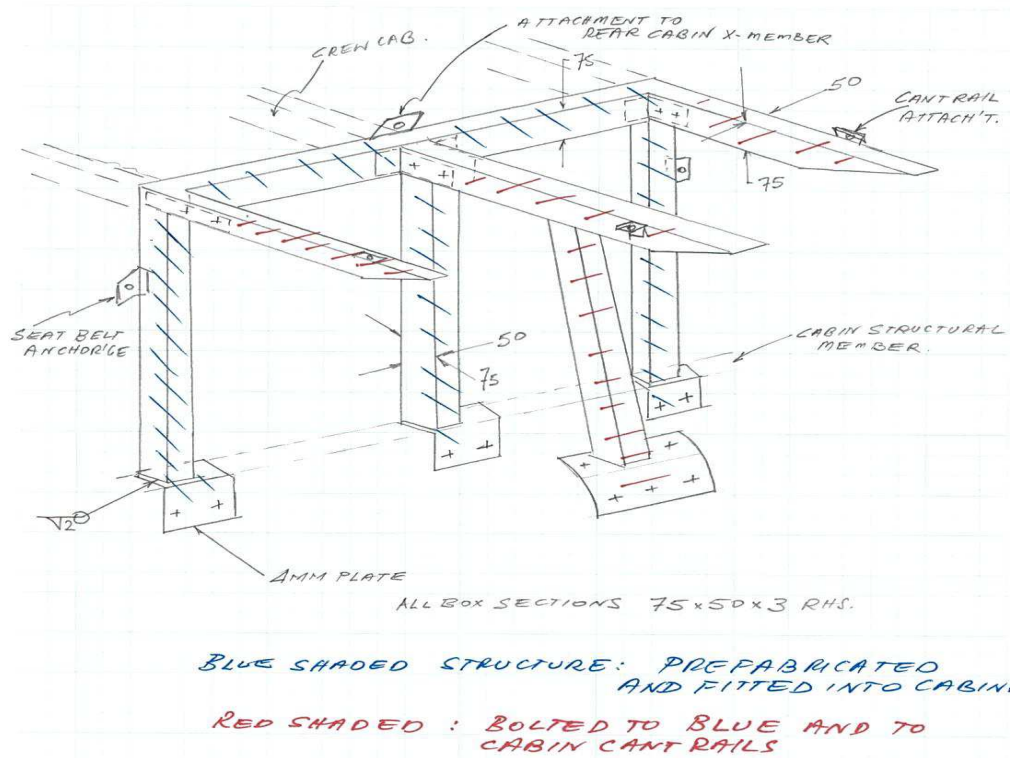 ATTACHMENT TO
REAR CABIN X-MEMBER
CREW CAB.
75
50
CANTRAIL
ATTACH'T.
75
SEAT BELT
ANCHOR'GE
50
75
CABIN STRUCTURAL
MEMBER.
2
4MM PLATE
ALL BOX SECTIONS 75x50x3 RHS.
BLUE SHADED STRUCTURE: PREFABRICATED
AND FITTED INTO CABIN
RED SHADED : BOLTED TO BLUE AND TO
CABIN CANT RAILS